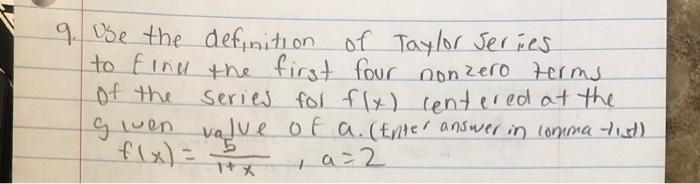 9. Use the definition of Taylor Series
to find the first four nonzero terms
of the series for f(x) centered at the
given value of a. (Enter answer in comma-list)
f(x) = 5/(1+x), a=2